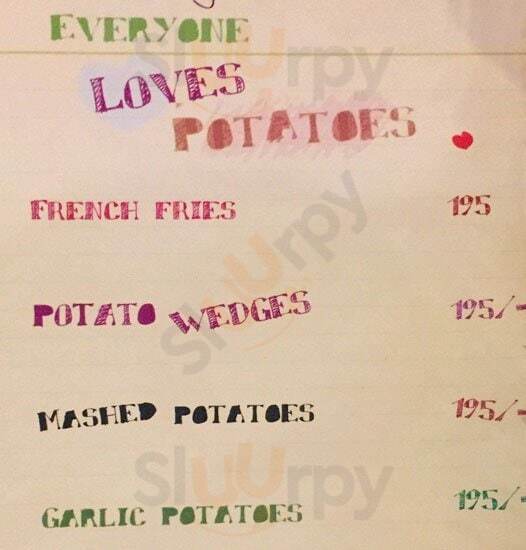 EVERYONE
LOVES
POTATOES
FRENCH FRIES 195
POTATO WEDGES 195/-
MASHED POTATOES 195/-
GARLIC POTATOES 195/-
Sluurpy
Sluurpy
Sluurpy